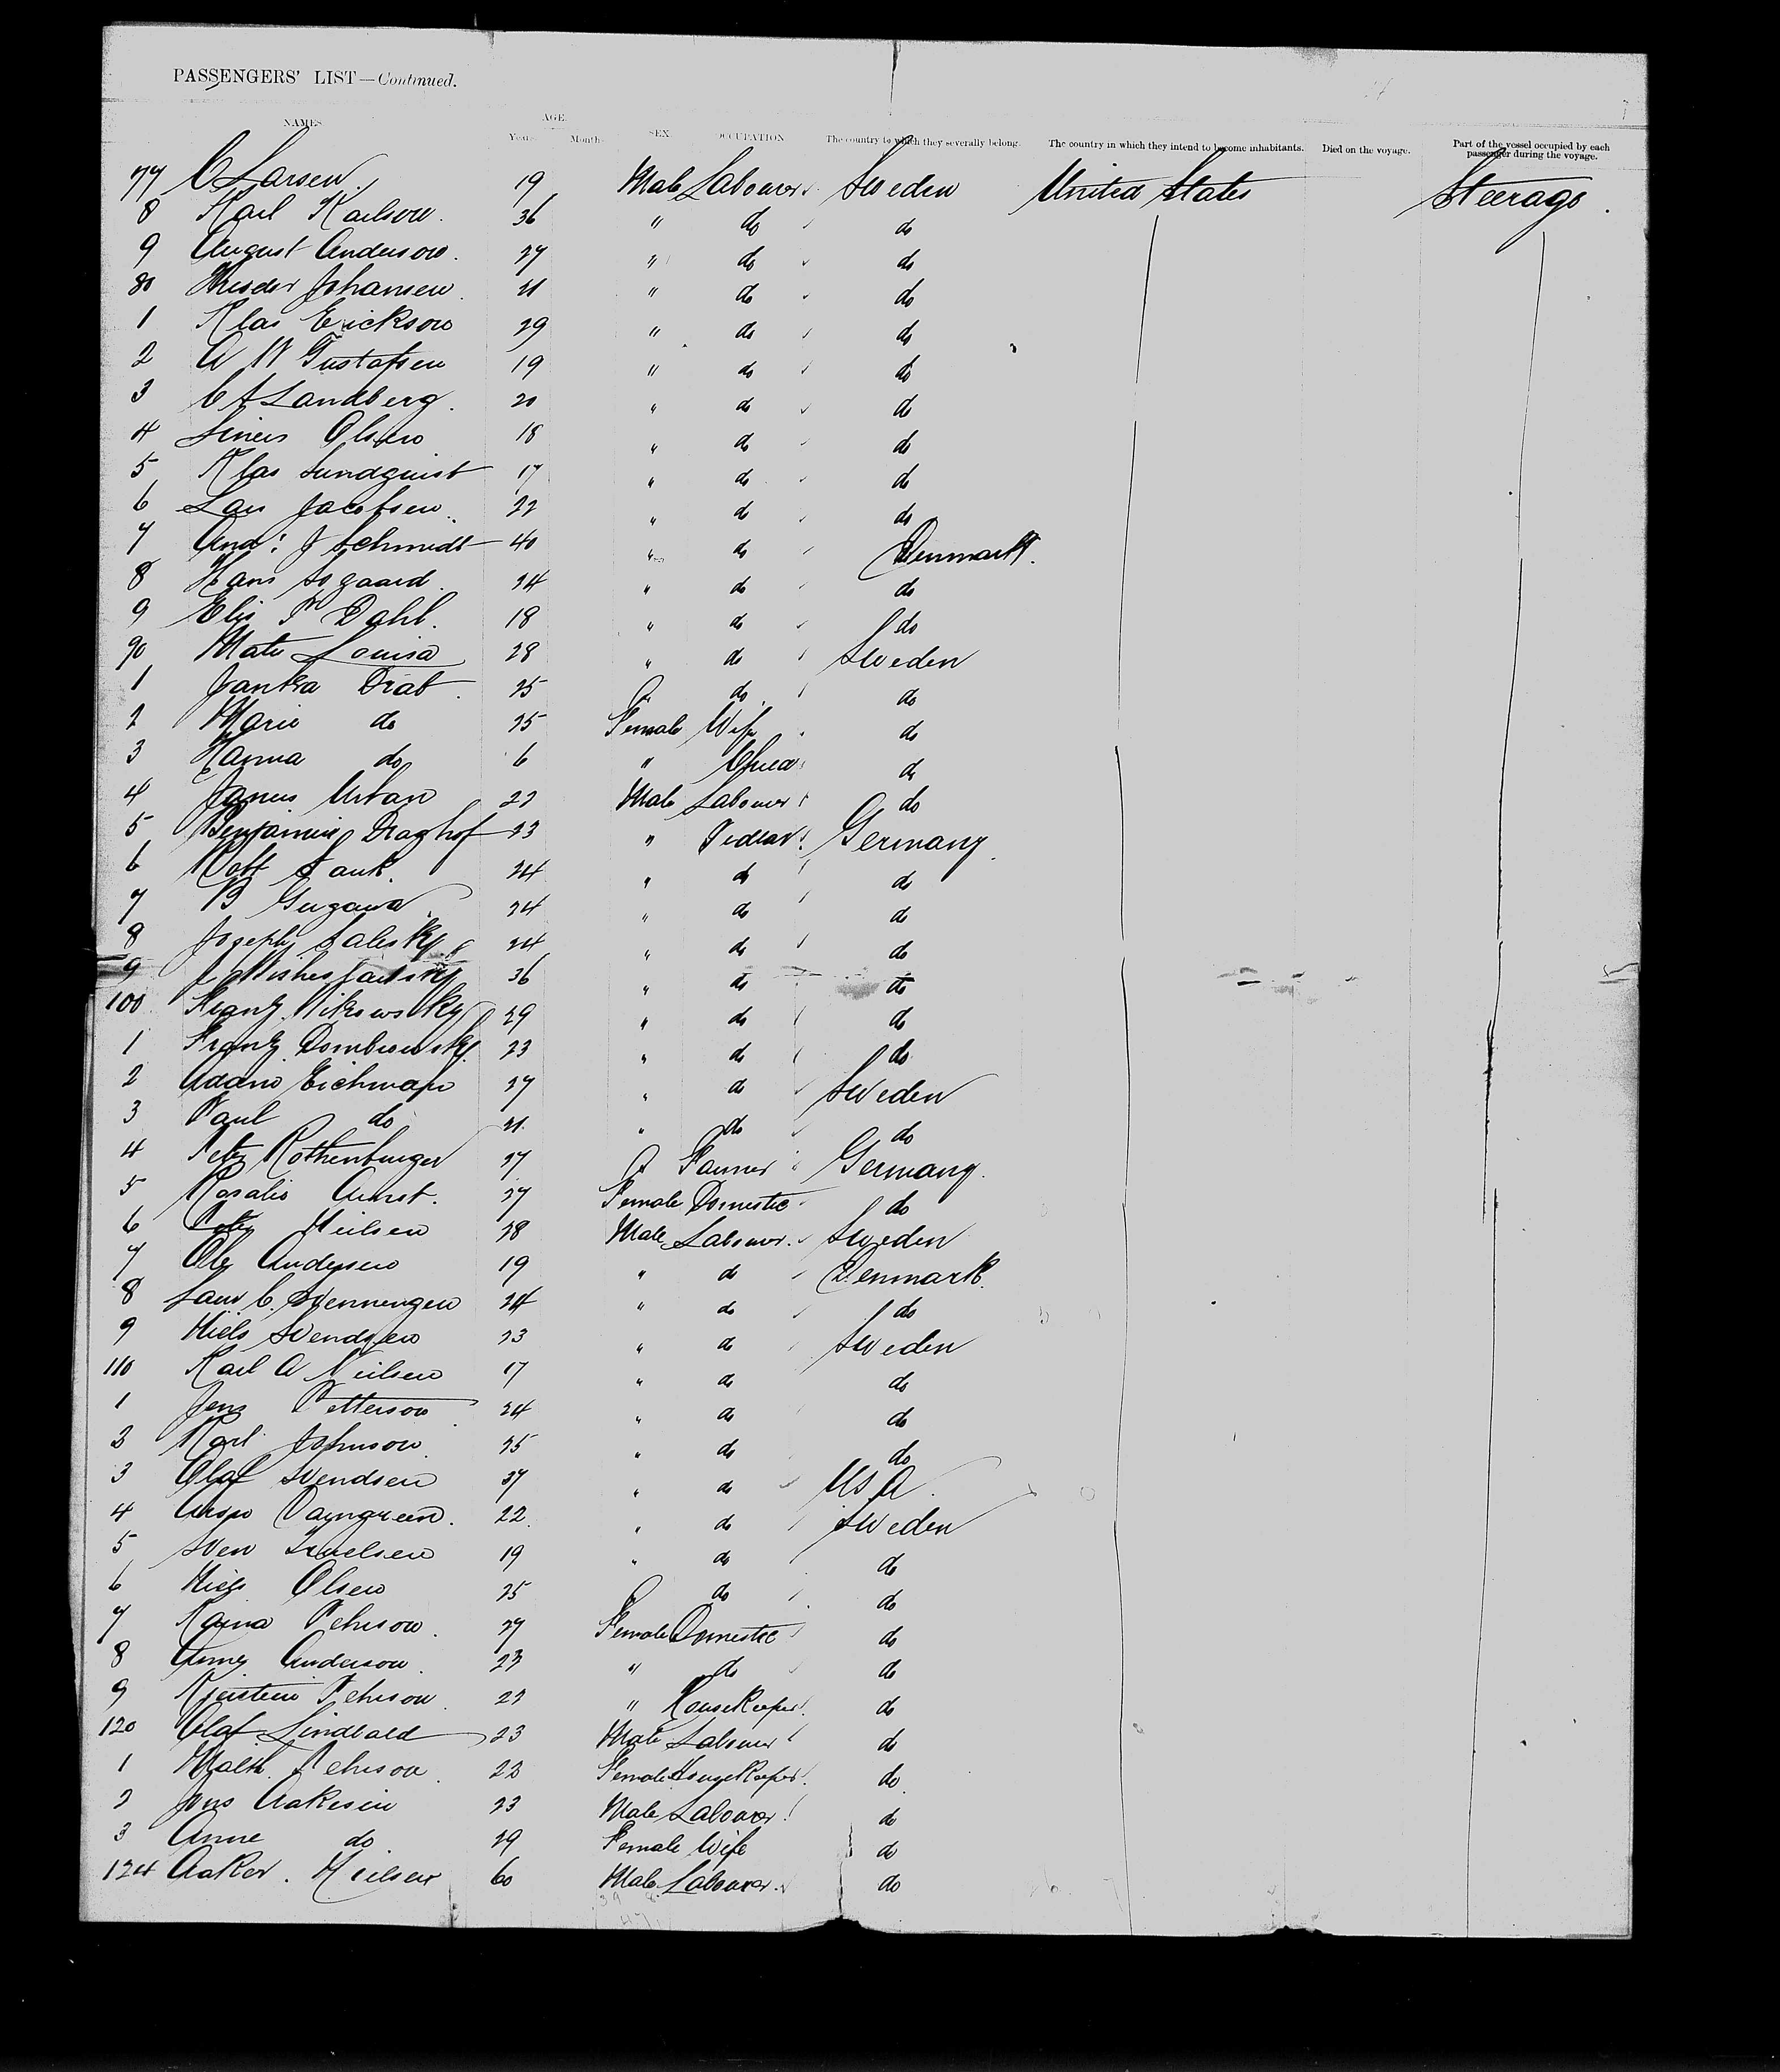 PASSENGERS' LIST—Continued.
NAMES. AGE. Years. Months. SEX. OCCUPATION The country to which they severally belong. The country in which they intend to become inhabitants. Died on the voyage. Part of the vessel occupied by each passenger during the voyage.
77 C Larsen. 19 Male Labourer Sweden United States Steerage.
8 Karl Karlson. 36 " do do
9 August Anderson. 27 " do do
80 Theodor Johansen. 21 " do do
1 Klas Erickson 29 " do do
2 A W Gustafsen 19 " do do
3 C A Landberg. 20 " do do
4 Olsen 18 " do do
5 Klas Lundquist 17 " do do
6 Lars Jacobsen. 22 " do do
7 And: J Schmidt 40 " do Denmark.
8 Hans Sogaard. 24 " do do
9 Elis P Dahl. 18 " do do
90 Louisa 28 " do Sweden
1 Janka Drab. 25 do do
2 Marie do 25 Female Wife do
3 Hanna do 6 " Child do
4 Janus Urban 22 Male Labourer do
5 Benjamin Draghof 23 " Pedlar Germany.
6 24 " do do
7 B 24 " do do
8 Joseph Salesky 24 " do do
9 36 " do do
100 Franz 29 " do do
1 Franz Dombrowsky 23 " do do
2 Adam 27 " do Sweden
3 Paul do 21 " do do
4 Peter Rothenburger 27 Farmer Germany.
5 Rosalie 27 Female Domestic do
6 Peter Nielsen 28 Male Labourer. Sweden
7 Ole Andersen 19 " do Denmark.
8 Laur C. 24 " do do
9 Niels Svendsen 23 " do Sweden
110 Karl A Nielsen 17 " do do
1 Jens Petterson 24 " do do
2 Karl Johnson 25 " do do
3 Olaf Svendsen 37 " do U S A.
4 22 " do Sweden
5 Sven Truelsen 19 " do do
6 Niels Olsen 25 do do
7 Pehrson. 27 Female Domestic do
8 Anna Anderson. 23 " do do
9 Pehrson. 22 " Housekeeper. do
120 Olaf 23 Male Labourer do
1 Pehrson. 22 Female Housekeeper. do
2 Jons Aakesen 23 Male Labourer do
3 Anne do 29 Female Wife do
124 Aaker. Nielsen 60 Male Labourer. do